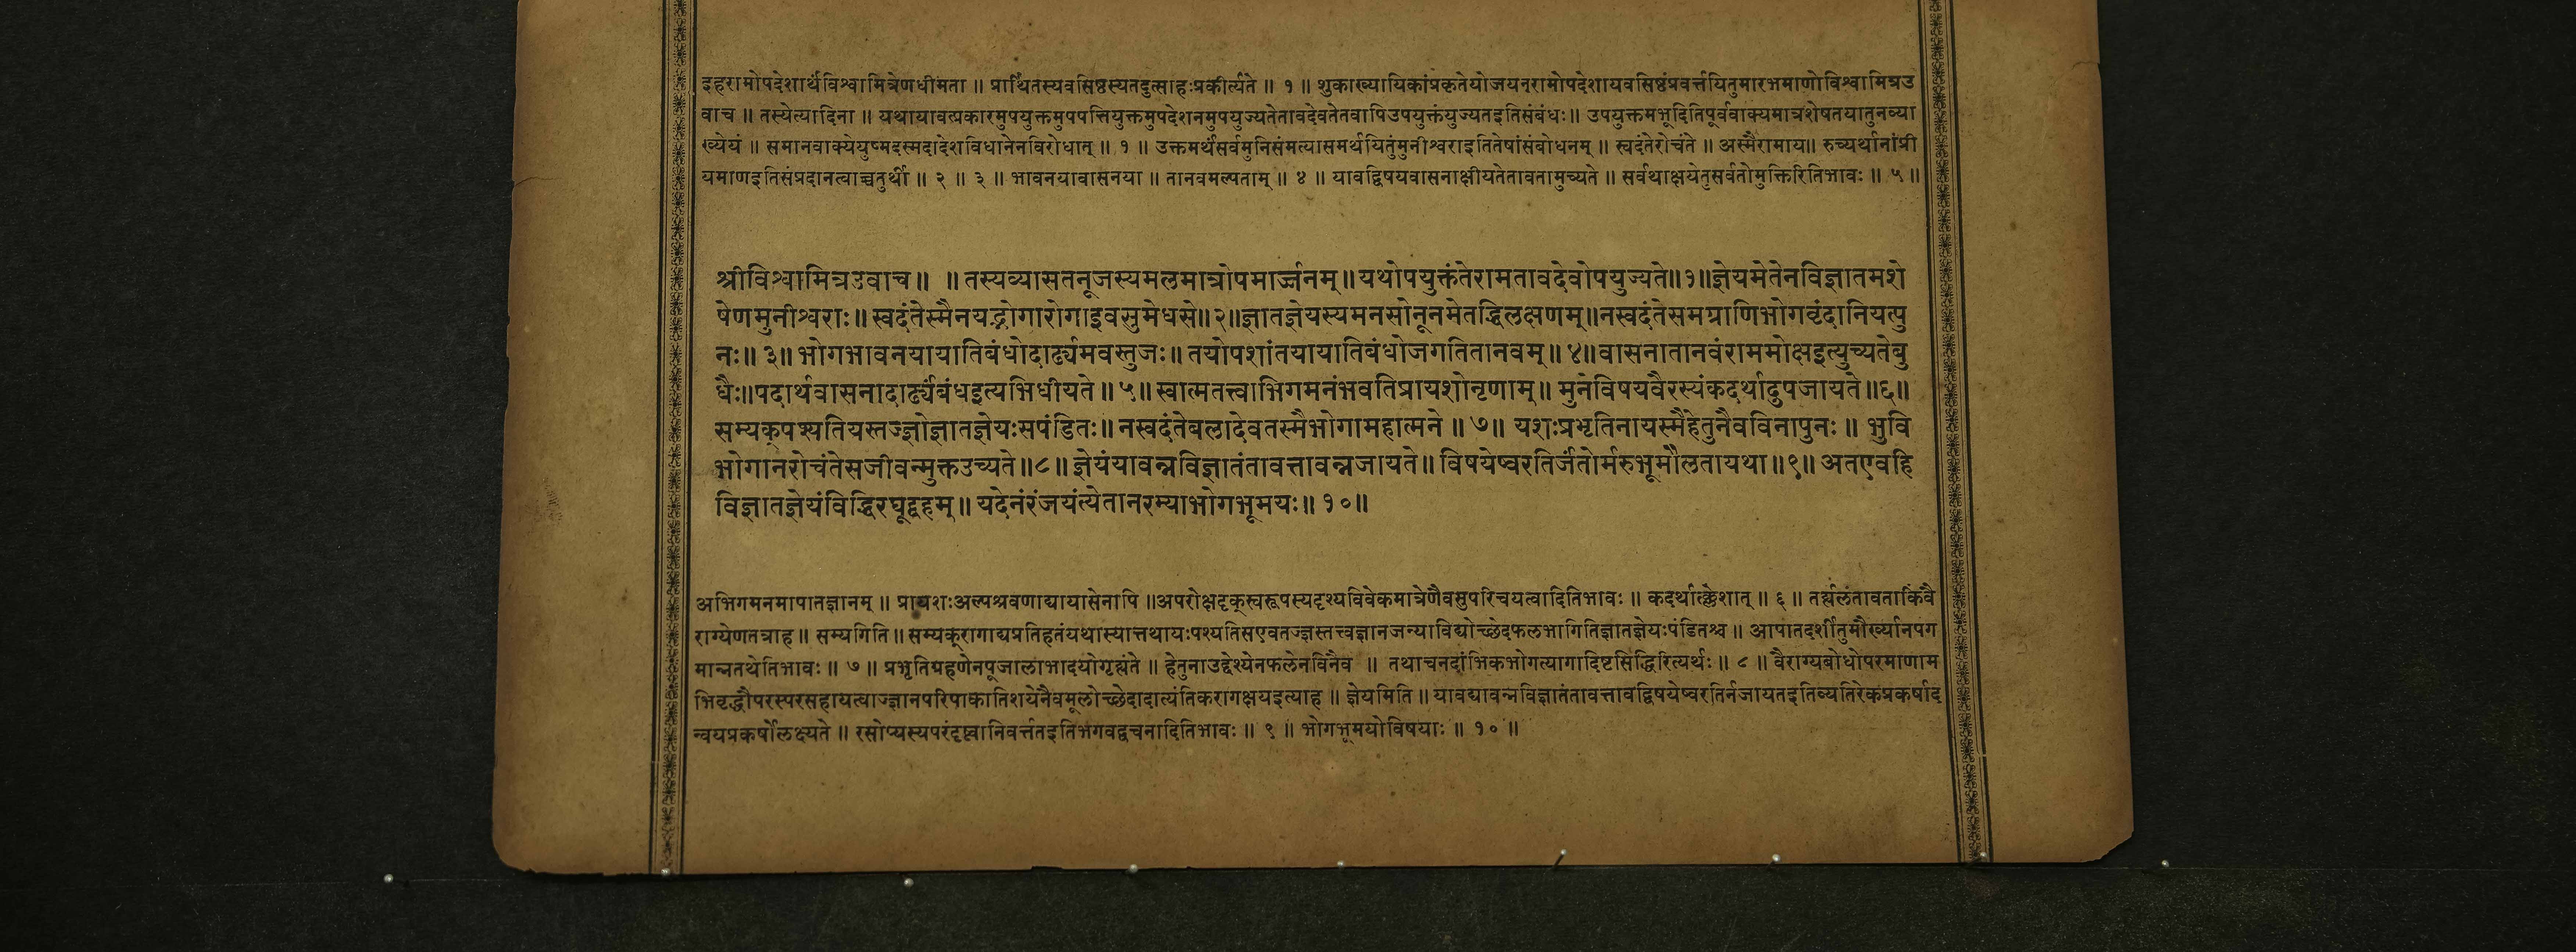 इहरामोपदेशार्थंविश्वामित्रेणधीमता ॥ प्रार्थितस्यवसिष्ठस्यतदुत्साहःप्रकीर्त्यते ॥ १ ॥ शुकाख्यायिकांप्रकृतेयोजयन्रामोपदेशायवसिष्ठंप्रवर्त्तयितुमारभमाणोविश्वामित्रउ
वाच ॥ तस्येत्यादिना ॥ यथायावत्प्रकारमुपयुक्तमुपपत्तियुक्तमुपदेशनमुपयुज्यतेतावदेवतेतवापिउपयुक्तंयुज्यतइतिसंबंधः॥ उपयुक्तमभूदितिपूर्ववाक्यमात्रशेषतयातुनव्या
ख्येयं ॥ समानवाक्येयुष्मदस्मदादेशविधानेनविरोधात् ॥ १ ॥ उक्तमर्थंसर्वमुनिसंमत्यासमर्थयितुंमुनीश्वराइतितेषांसंबोधनम् ॥ स्वदंतेरोचंते ॥ अस्मैरामाय॥ रुच्यर्थानांप्री
यमाणइतिसंप्रदानत्वाच्चतुर्थी ॥ २ ॥ ३ ॥ भावनयावासनया ॥ तानवमल्पताम् ॥ ४ ॥ यावद्विषयवासनाक्षीयतेतावतामुच्यते ॥ सर्वथाक्षयेतुसर्वतोमुक्तिरितिभावः ॥ ५ ॥
श्रीविश्वामित्रउवाच॥ ॥ तस्यव्यासतनूजस्यमलमात्रोपमार्ज्जनम्॥यथोपयुक्तंतेरामतावदेवोपयुज्यते॥१॥ज्ञेयमेतेनविज्ञातमशे
षेणमुनीश्वराः॥ स्वदंतेस्मैनयद्भोगारोगाइवसुमेधसे॥२॥ज्ञातज्ञेयस्यमनसोनूनमेतद्धिलक्षणम्॥नस्वदंतेसमग्राणिभोगवृंदानियत्पु
नः॥ ३॥ भोगभावनयायातिबंधोदार्ढ्यमवस्तुजः॥ तयोपशांतयायातिबंधोजगतितानवम्॥ ४॥वासनातानवंराममोक्षइत्युच्यतेबु
धैः॥पदार्थवासनादार्ढ्यंबंधइत्यभिधीयते॥ ५॥ स्वात्मतत्त्वाभिगमनंभवतिप्रायशोनृणाम्॥ मुनेविषयवैरस्यंकदर्थादुपजायते॥६॥
सम्यक्पश्यतियस्तज्ज्ञोज्ञातज्ञेयःसपंडितः॥ नस्वदंतेबलादेवतस्मैभोगामहात्मने ॥ ७॥ यशःप्रभृतिनायस्मैहेतुनैवविनापुनः ॥ भुवि
भोगानरोचंतेसजीवन्मुक्तउच्यते॥८॥ ज्ञेयंयावन्नविज्ञातंतावत्तावन्नजायते॥ विषयेष्वरतिर्जंतोर्मरुभूमौलतायथा॥९॥ अतएवहि
विज्ञातज्ञेयंविद्धिरघूद्वहम्॥ यदेनंरंजयंत्येतानरम्याभोगभूमयः॥ १०॥
अभिगमनमापातज्ञानम् ॥ प्रायशःअल्पश्रवणाद्यायासेनापि ॥अपरोक्षदृक्स्वरूपस्यदृश्यविवेकमात्रेणैवसुपरिचयत्वादितिभावः ॥ कदर्थात्क्लेशात् ॥ ६ ॥ तर्ह्यलंतावताकिंवै
राग्येणतत्राह ॥ सम्यगिति ॥ सम्यक्रागाद्यप्रतिहतंयथास्यात्तथायःपश्यतिसएवतज्ज्ञस्तत्त्वज्ञानजन्याविद्योच्छेदफलभागितिज्ञातज्ञेयःपंडितश्च ॥ आपातदर्शीतुमौर्ख्यानपग
मान्नतथेतिभावः ॥ ७ ॥ प्रभृतिग्रहणेनपूजालाभादयोगृह्यंते ॥ हेतुनाउद्देश्येनफलेनविनैव ॥ तथाचनदांभिकभोगत्यागादिष्टसिद्धिरित्यर्थः ॥ ८ ॥ वैराग्यबोधोपरमाणाम
भिवृद्धौपरस्परसहायत्वाज्ज्ञानपरिपाकातिशयेनैवमूलोच्छेदादात्यंतिकरागक्षयइत्याह ॥ ज्ञेयमिति ॥ यावद्यावन्नविज्ञातंतावत्तावद्विषयेष्वरतिर्नजायतइतिव्यतिरेकप्रकर्षाद
न्वयप्रकर्षोलक्ष्यते ॥ रसोप्यस्यपरंदृष्ट्वानिवर्त्ततइतिभगवद्वचनादितिभावः ॥ ९ ॥ भोगभूमयोविषयाः ॥ १० ॥